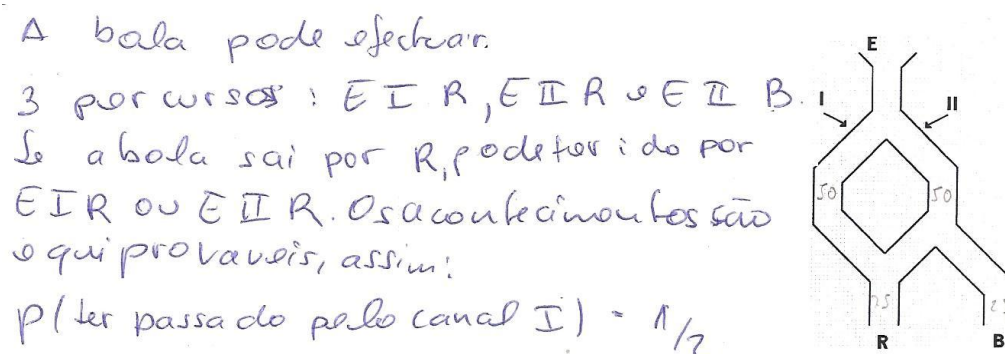 A bola pode efectuar.
3 percursos : E I R, E II R e E II B.
Se a bola sai por R, pode ter ido por
E I R ou E II R. Os acontecimentos são
equiprovaveis, assim:
P(ter passado pelo canal I) = 1/2
E
I
II
50
50
25
25
R
B